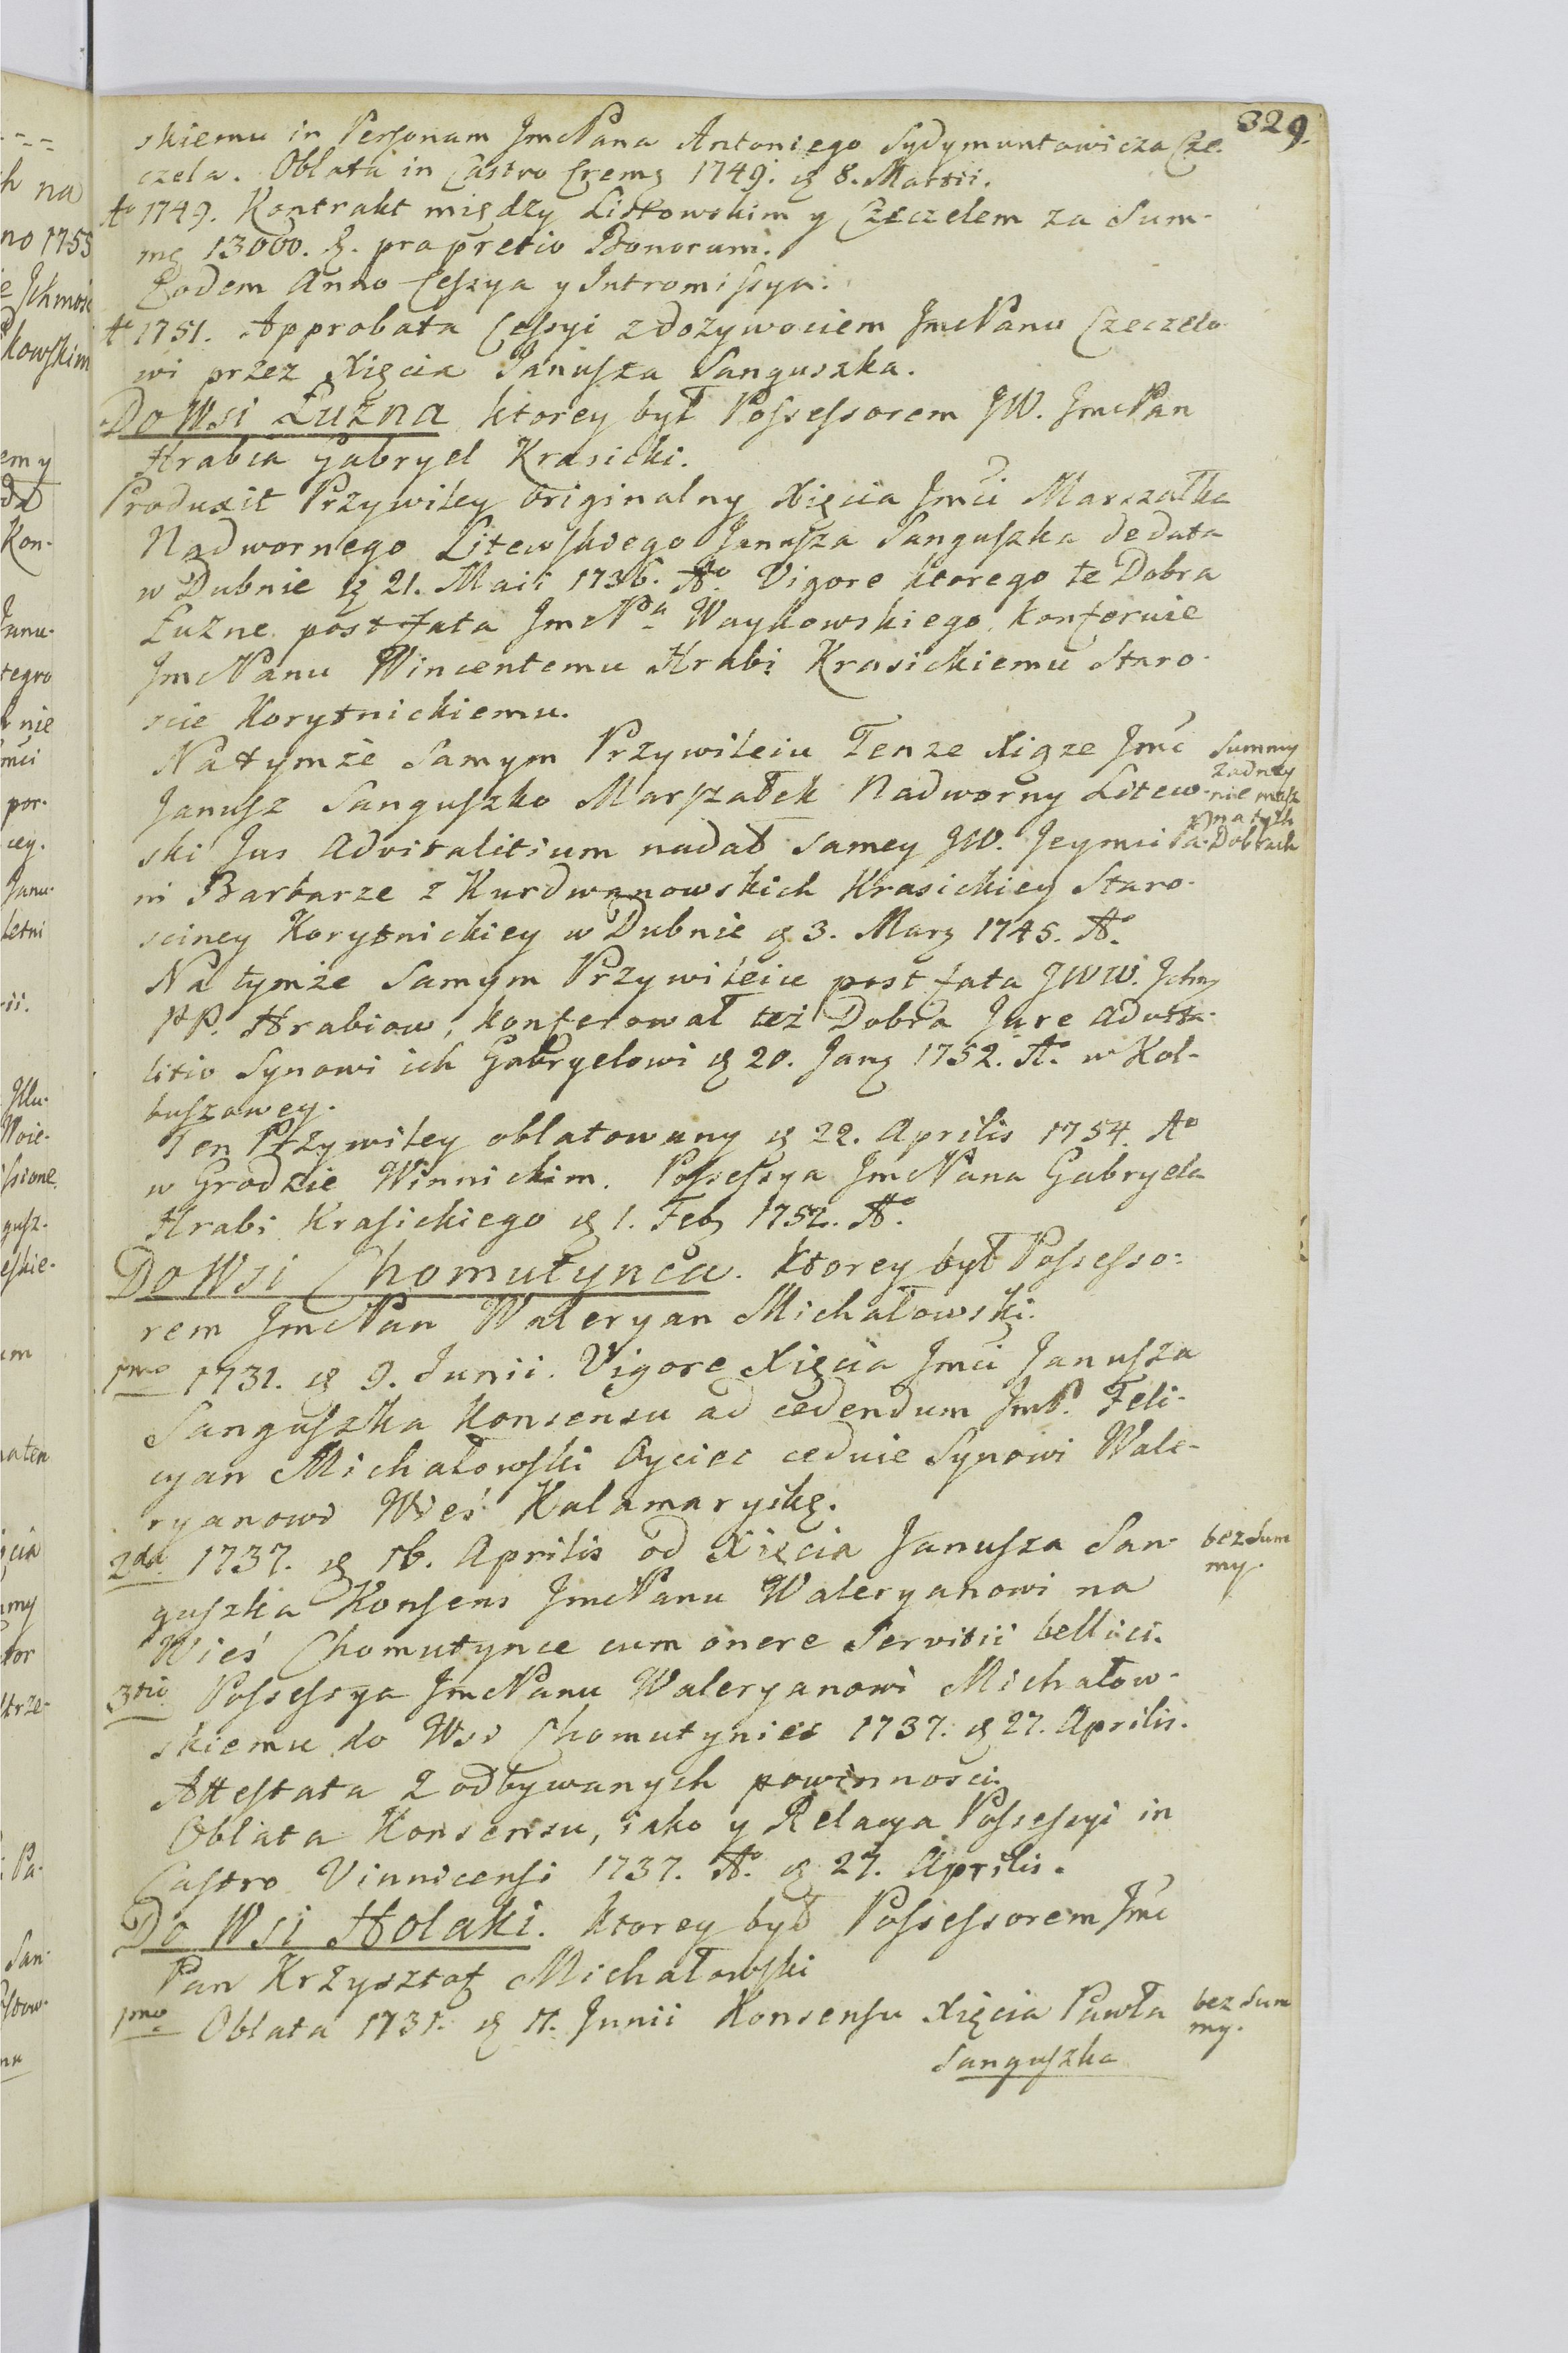 329.
skiemu in Personam JmcPana Antoniego Sydymuntowicza Cze-
czela. Oblata in Castro Crem 1749. d 8. Martii.
Aº 1749. Kontrakt między Listowskim y Czeczelem za Sum-
mę 13000. pro pretio Bonorum.
Eodem Anno Cessya y Intromissya.
Aº 1751. Approbata Cessyi z dozywociem JmcPanu Czeczelo-
wi przez Xięcia Janusza Sanguszka.
Do Wsi Łuzna ktorey był Possessorem JW. JmcPan
Hrabia Gabryel Krasicki.
Produxit Przywiley originalny Xięcia Jmci Marszałka
Nadwornego Litewskiego Janusza Sanguszka de data
w Dubnie d 21. Maii 1736. Aº Vigore ktorego te Dobra
Łuzne post fata JmcPª Waykowskiego konferuie
JmcPanu Wincentemu Hrabi Krasickiemu Staro-
scie Korytnickiemu.
Na tymże samym Przywileiu Tenze Xiąze Jmć
Janusz Sanguszko Marszałek Nadworny Litew-
ski Jus advitalitium nadał samey JW. Jeymci Pa-
ni Barbarze z Kurdwanowskich Krasickiey Staro-
sciney Korytnickiey w Dubnie d 3. Mar 1745. Aº
Summy
zadney
nie masz
na tych
Dobrach
Na tymże samym Przywileiu post fata JWW. Jchm
PP. Hrabiow, konferował też Dobra Jure advita-
litio Synowi ich Gabryelowi d 20. Jan 1752. Aº w Kol-
buszowey.
Ten Przywiley oblatowany d 22. Aprilis 1754. Aº
w Grodzie Winnickim. Possessya JmcPana Gabryela
Hrabi Krasickiego d 1. Feb 1752. Aº
Do Wsi Chomutynca. ktorey był Possesso-
rem JmcPan Waleryan Michałowski.
1mo 1731. d 9. Junii. Vigore Xięcia Jmci Janusza
Sanguszka Konsensu ad cedendum JmP. Feli-
cyan Michałowski Oyciec ceduie Synowi Wale-
ryanowi Wieś Kalamaryskę.
2da 1737. d 16. Aprilis od Xięcia Janusza San-
guszka Konsens JmcPanu Waleryanowi na
Wieś Chomutynce cum onere Servitii bellici.
bez Sum
my.
3tio Possessya JmcPanu Waleryanowi Michałow-
skiemu do Wsi Chomutyniec 1737. d 27. Aprilis.
Attestata 2 odbywanych powinnosci
Oblata Konsensu, iako y Relacya Possessyi in
Castro Vinnicensi 1737. Aº d 27. Aprilis.
Do Wsi Holaki. ktorey był Possessorem Jmć
Pan Krzysztof Michałowski
1mo Oblata 1731. d 11. Junii Konsensu Xięcia Pawła
bez Sum
my.
Sanguszka